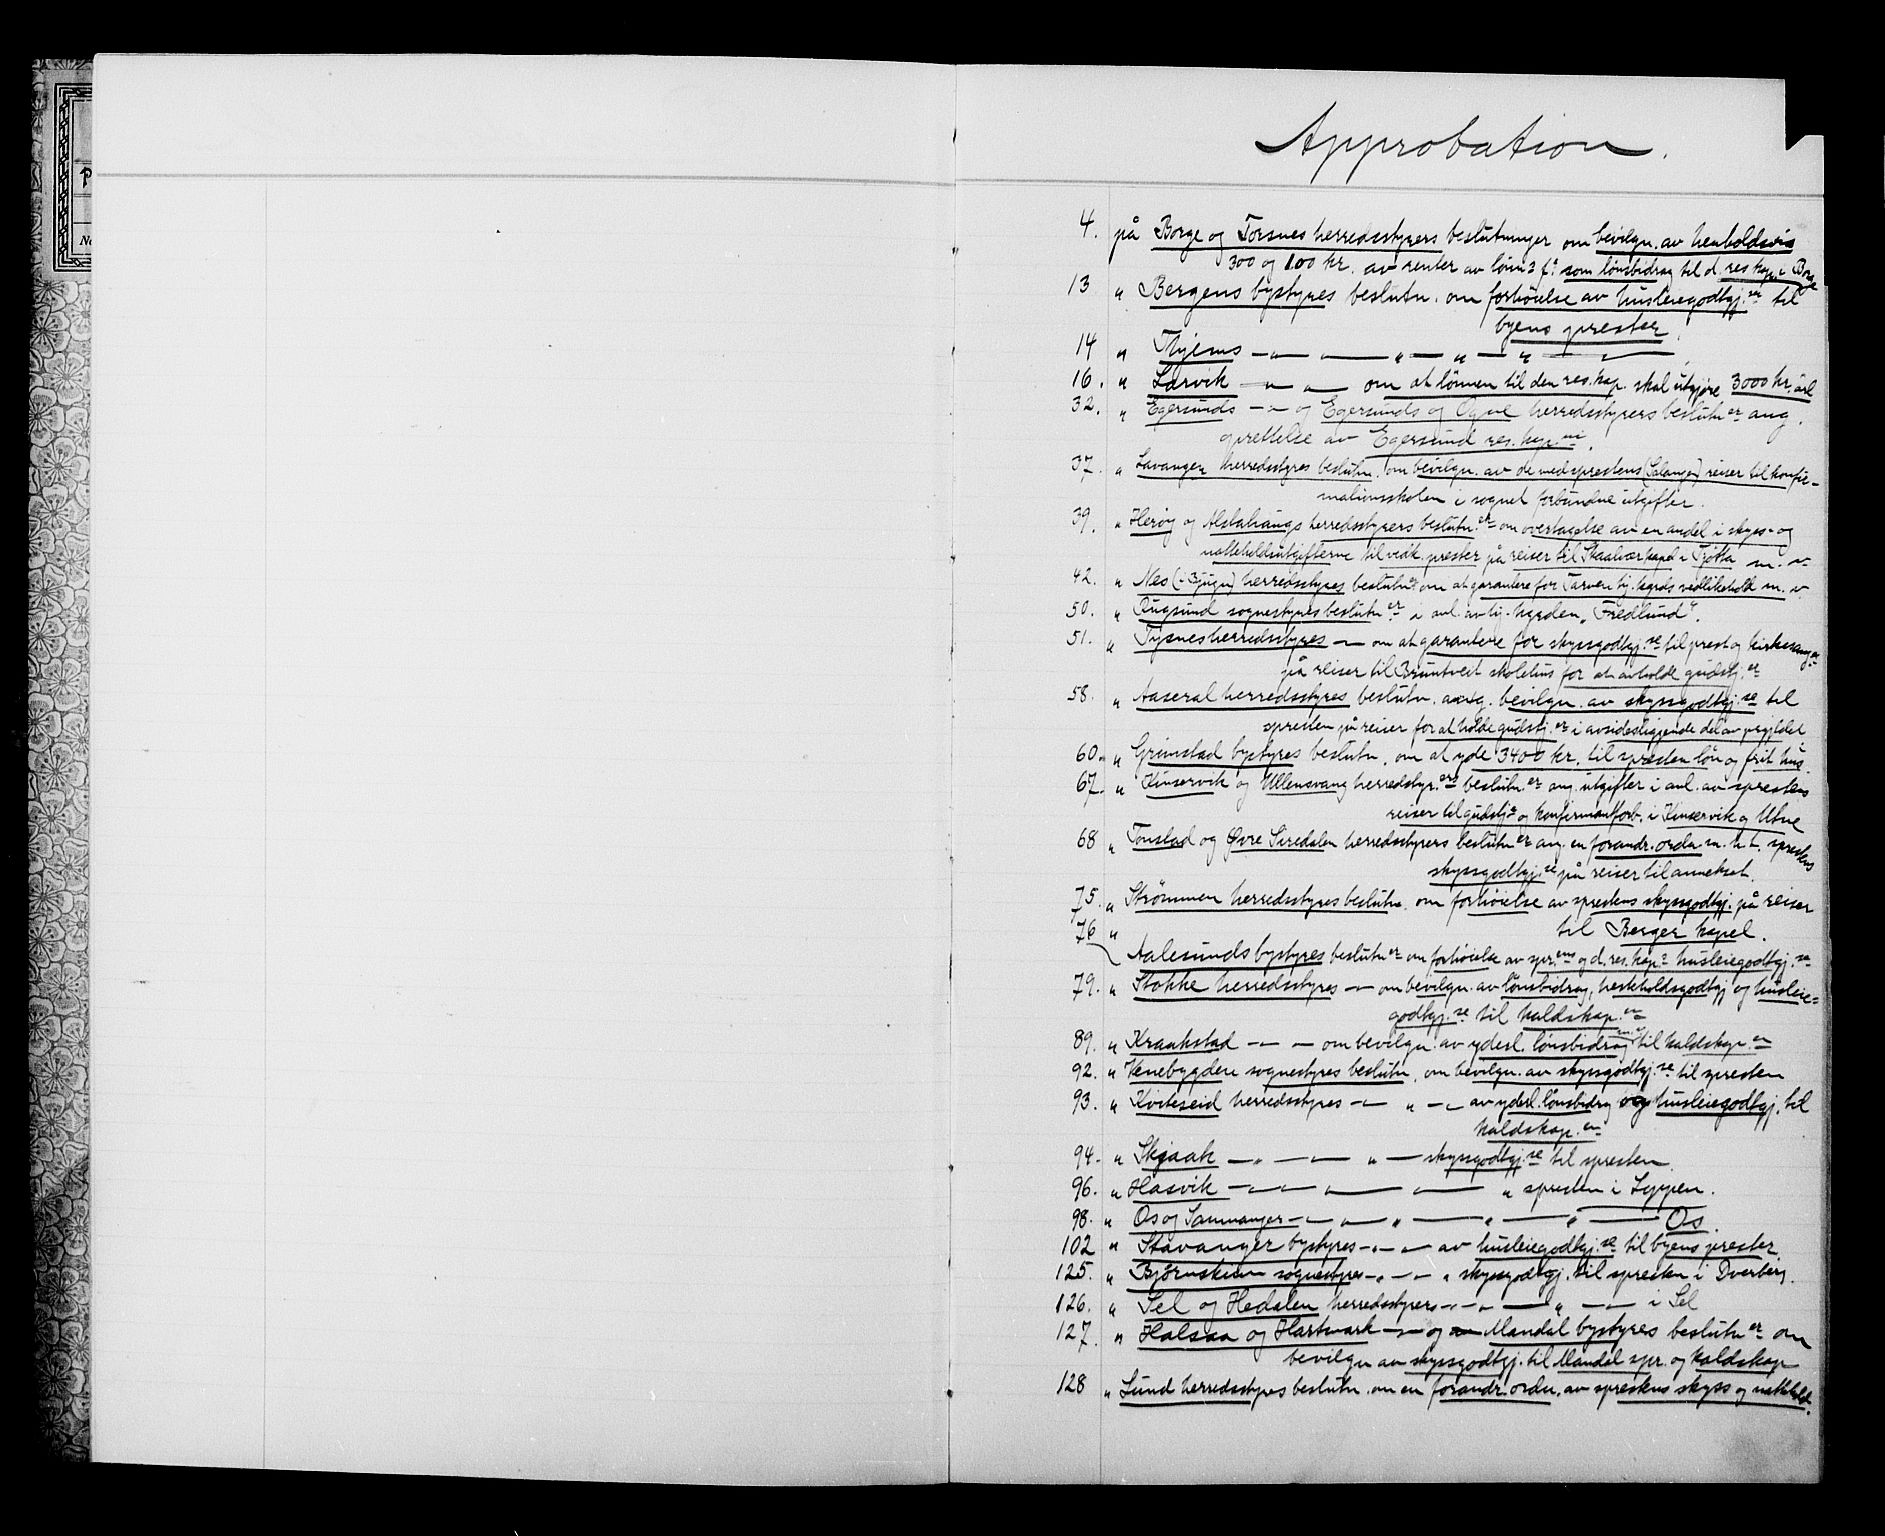 Approbation.
4. på Borge og Torsnes herredsstyrers beslutninger om bevilgn. av henholdsvis
300 og 100 kr. av renter av som lønsbidrag til d. res. kap. i Borge
13 " Bergens bystyres beslutn. om forhöielse av husleiegodtgj.se til
byens prester.
14 " — " — " — " — " —
16. " Larvik — " — om at lönnen til den res. kap. skal utgjöre 3000 kr. årl
32. " Egersunds — " — og Egersunds og Ogne herredsstyrers beslutn.er ang.
oprettelse av Egersund res. kap.
37. " Lavangen herredsstyres beslutn. om bevilgn. av de med sprestens (Salangen) reiser til konfir-
mationsskolen i sognet forbundne utgifter.
39. " Heröy og Alstahaugs herredsstyrers beslutn.er om overtagelse av en andel i skyss- og
natteholdsutgifterne til vedk. prester på reiser til Skaalvær kapel i Tjötta m. v.
42. " Nes herredsstyres beslutn. om at garantere for Tarven bj.kgrds vedlikehold m. v
50. " Rugsund sognestyres beslutn.er i anl. av bj. hgrden "Fredlund".
51. " Tysnes herredsstyres — om at garantere for skyssgodtgj.se til prest og kirkesanger
på reiser til Bruntveit skolehus for at avholde gudstj.er
58. " Aaseral herredsstyres beslutn. ang. bevilgn. av skyssgodtgj.se til
spresten på reiser for at holde gudstj.er i avsidesliggende del av prgjeldet
60. " Grimstad bystyres beslutn. om at yde 3400 kr. til spresten lön og frit hus.
67. " Kinservik og Ullensvang herredsstyr.ers beslutn.er ang. utgifter i anl. av sprestens
reiser til gudstj.r og konfirmantforb. i Kinservik og Utne
68 " Tonstad og Øvre Siredalen herredsstyrers beslutn.er ang. en forandr. ordn. m. h. t. sprestens
skyssgodtgj.se på reiser til annekset.
75. " Strömmen herredsstyres beslutn. om forhöielse av sprestens skyssgodtgj. på reiser
til Berger kapel.
76 " Aalesunds bystyres beslutn.er om forhöielse av spr.ens og d. res. kap.s husleiegodtgj.se
79. " Stokke herredsstyres — om bevilgn. av lönsbidrag, hesteholdsgodtgj og husleie-
godtgj.se til kaldskap.en
89. " Kraakstad — " — om bevilgn. av yderl. lönsbidrag til kaldskap.en
92. " Venebygden sognestyres beslutn. om bevilgn. av skyssgodtgj.se til spresten
93. " Kviteseid herredsstyres — " — av yderl. lönsbidrag og husleiegodtgj. til
kaldskap.en
94. " Skjaak — " — " — skyssgodtgj.se til spresten.
96. " Hasvik — " — " — " spresten i Loppen.
98. " Os og Samnanger — " — " — " — Os.
102 " Stavanger bystyres — " — av husleiegodtgj.se til byens prester.
125. " Björnskinn sognestyres — " — " skyssgodtgj. til spresten i Dverberg.
126. " Sel og Hedalen herredsstyrers — " — " — i Sel
127. " Halsaa og Hartmark — " — og Mandal bystyres beslutn.er om
bevilgn av skyssgodtgj. til Mandal spr. og kaldskap
128 " Lund herredsstyres beslutn. om en forandr. ordn. av sprestens skyss og nattehold.